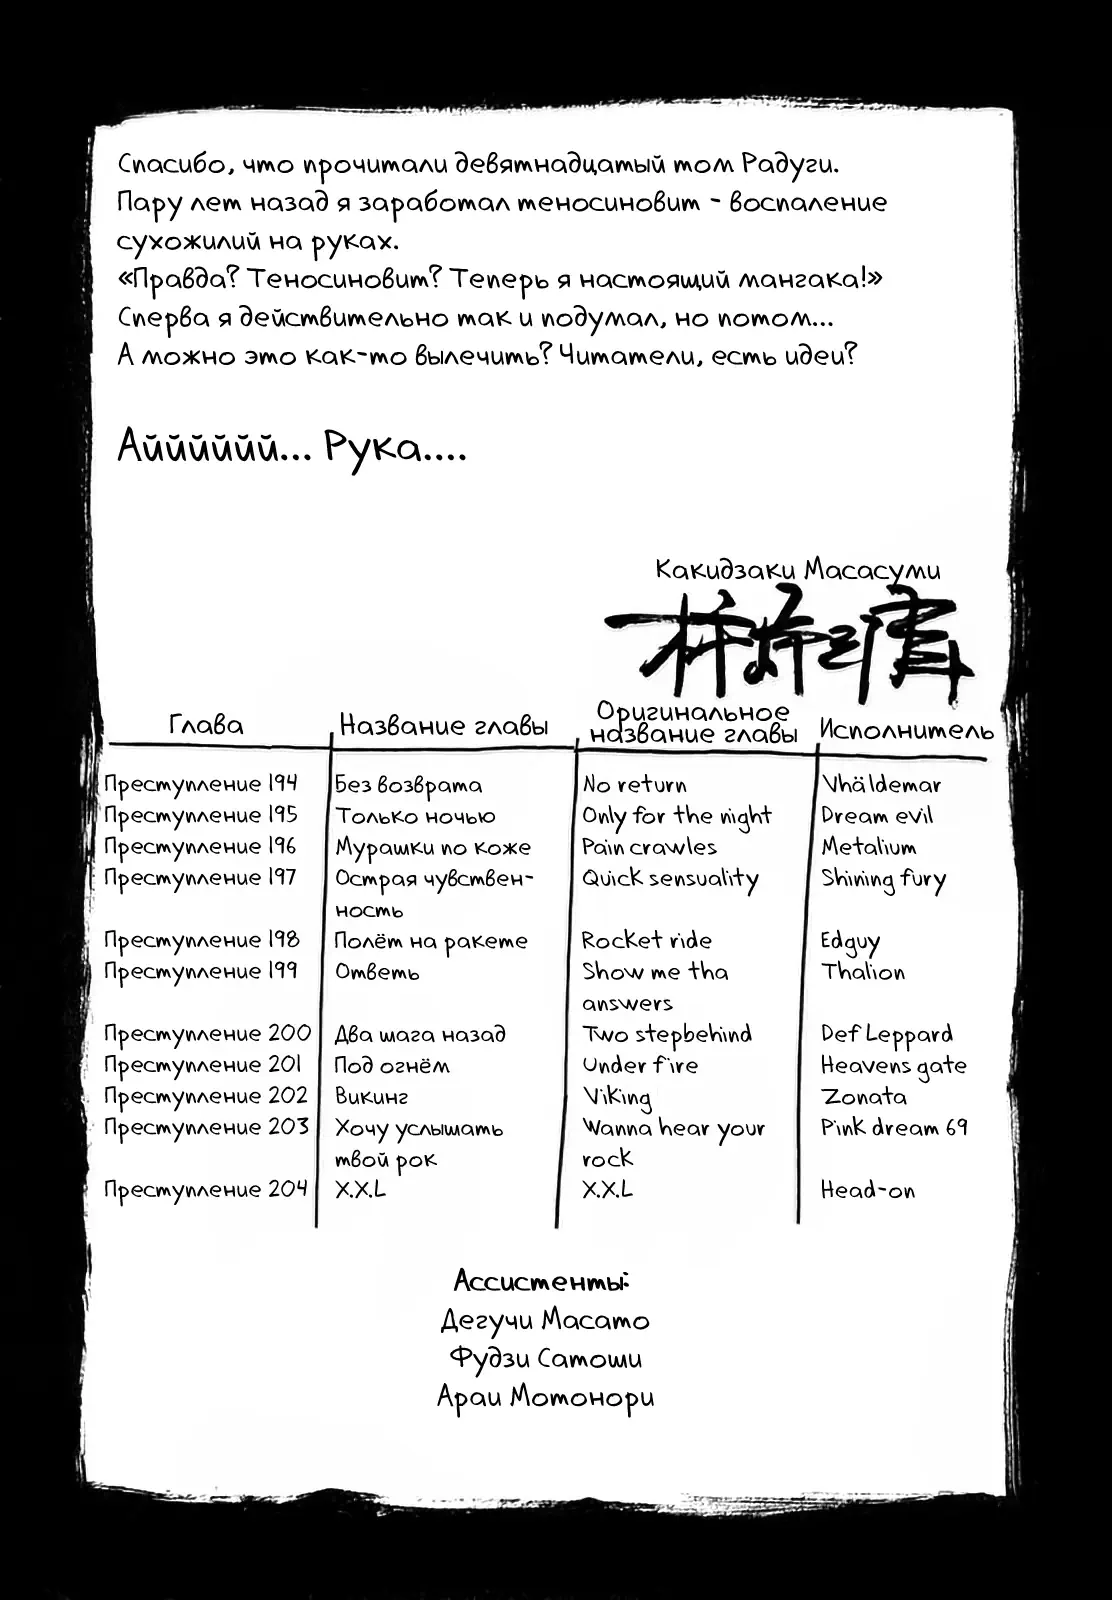 Спасибо, что прочитали девятнадцатый том Радуги.
Пару лет назад я заработал теносиновит - воспаление
сухожилий на руках.
«Правда? Теносиновит? Теперь я настоящий мангака!»
Сперва я действительно так и подумал, но потом...
А можно это как-то вылечить? Читатели, есть идеи?
Аййййй... Рука....
Какидзаки Масасуми
Глава Название главы Оригинальное название главы Исполнитель
Преступление 194 Без возврата No return Vhäldemar
Преступление 195 Только ночью Only for the night Dream evil
Преступление 196 Мурашки по коже Pain crawles Metalium
Преступление 197 Острая чувствен- Quick sensuality Shining fury
ность
Преступление 198 Полёт на ракете Rocket ride Edguy
Преступление 199 Ответь Show me tha Thalion
answers
Преступление 200 Два шага назад Two stepbehind Def Leppard
Преступление 201 Под огнём Under fire Heavens gate
Преступление 202 Викинг Viking Zonata
Преступление 203 Хочу услышать Wanna hear your Pink dream 69
твой рок rock
Преступление 204 X.X.L X.X.L Head-on
Ассистенты:
Дегучи Масато
Фудзи Сатоши
Араи Мотонори